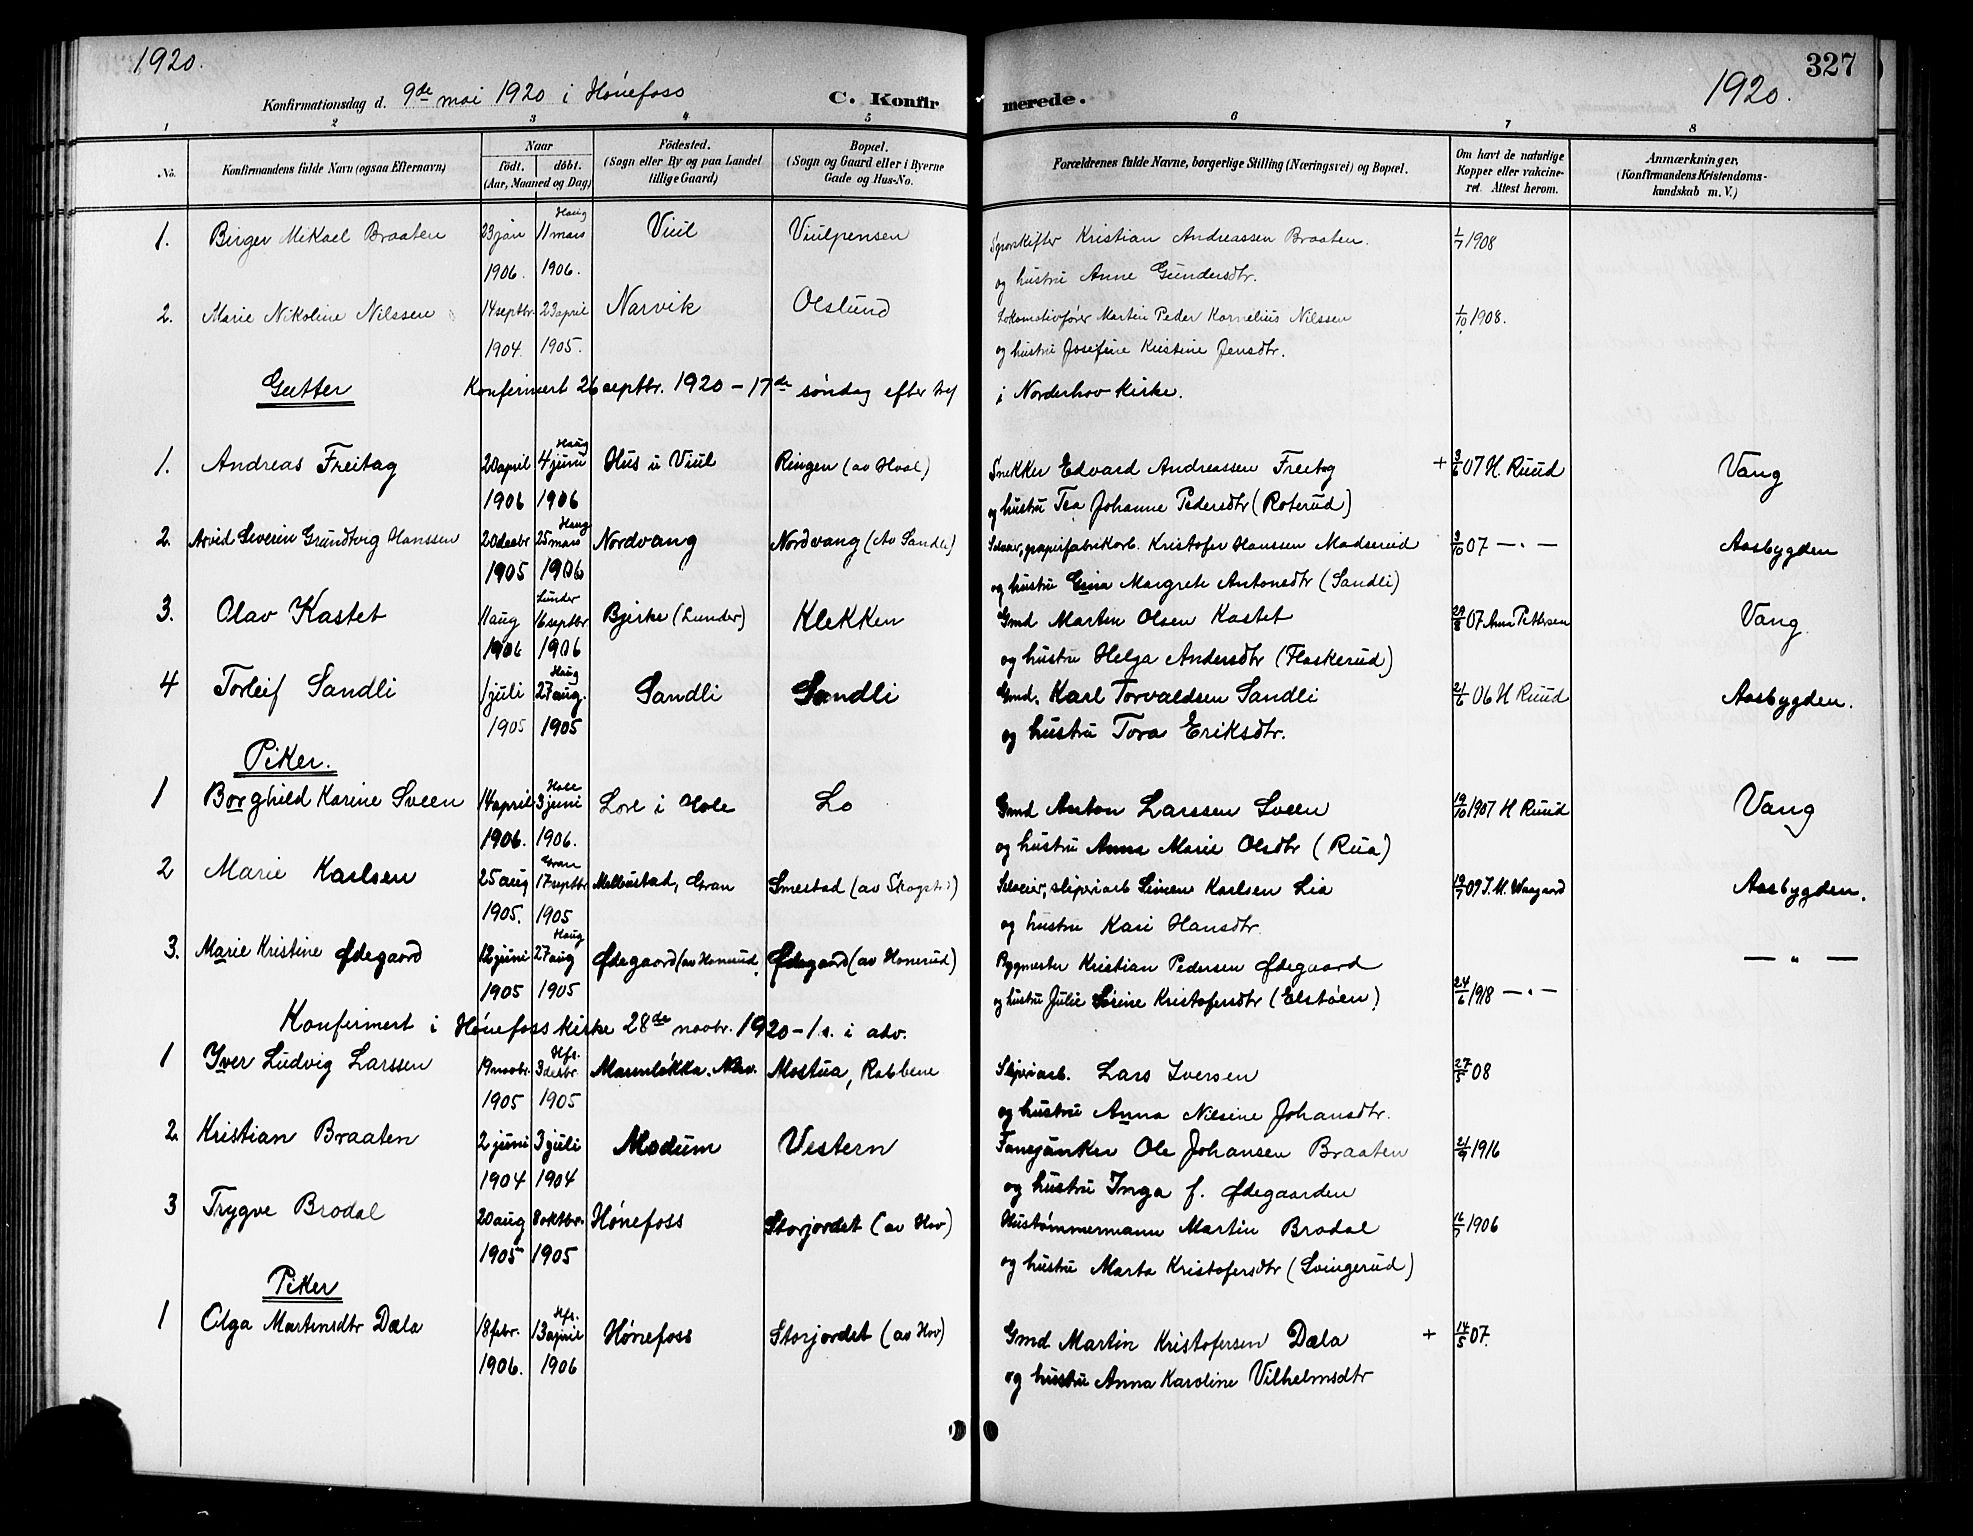 1920.
327
1920.
Konfirmationsdag d. 9de mai 1920 i Hønefoss
C. Konfir
merede.
1 2 3 4 5 6 7 8
No.
Konfirmandens fulde Navn (ogsaa Efternavn)
Naar
født. døbt.
(Aar, Maaned og Dag)
Fødested.
(Sogn eller By og paa Landet
tillige Gaard)
Bopæl.
(Sogn og Gaard eller i Byerne
Gade og Hus-No.
Forældrenes fulde Navne, borgerlige Stilling (Næringsvei) og Bopæl.
Om havt de naturlige
Kopper eller vakcine-
ret. Attest herom.
Anmærkninger,
(Konfirmandens Kristendoms-
kundskab m. V.)
Haug
1. Birger Mikael Braaten 23 jan 11 mars Viul Viulpensen Sporskifter Kristian Andreassen Braaten. 1/7 1908
1906. 1906. og hustru Anne Gundersdtr.
2. Marie Nikoline Nilssen 14 septbr. 23 april Narvik Olslund Lokomotivfører Martin Peder Kornelius Nilssen 1/10 1908.
1904. 1905. og hustru Josefine Kristine Jensdtr.
Gutter Konfirmert 26 septbr. 1920 – 17de søndag efter tref i Norderhov Kirke.
Haug
1. Andreas Freitag 20 april 4 juni Hus u Viul Ringen (av Hval) Snekker Edvard Andreassen Freitag + 3/6 07 H. Ruud Vang
1906 1906 og hustru Tea Johanne Pedersdtr (Roterud)
Haug
2. Arvid Severin Grundtvig Hanssen 20 desbr 25 mars Nordvang Nordvang (av Sandli) Selveier, papirfabrikarb. Kristofer Hanssen Madserud 3/10 07 — " — Aasbygden
1905 1906 og hustru Gina Margrete Antonsdtr (Sandli)
Lunder
3. Olav Kastet 11 aug 16 septbr Bjerke (Lunder) Klekken Gmd Martin Olsen Kastet 29/8 07 Anna Pettersen Vang
1906 1906 og hustru Helga Andersdtr (Flaskerud)
Haug
4 Torleif Sandli 1 juli 27 aug. Sandli Sandli Gmd. Karl Torvaldsen Sandli 21/6 06 H Ruud Aasbygden.
1905 1905 og hustru Tora Eriksdtr.
Piker.
Hole
1 Borghild Karine Sveen 14 april 3 juni Lore i Hole Lo Gmd Anton Larssen Sveen 19/10 1907 H Ruud Vang
1906. 1906. og hustru Anna Marie Olsdtr (Rua)
Gran
2 Marie Karlsen 25 aug 17 septbr Melbustad, Gran Smestad (av Skogstad) Selveier, sliperiarb Simen Karlsen Lia 19/7 09 Aasbygden.
1905. 1905 og hustru Kari Hansdtr
Haug
3. Marie Kristine Ødegaard 12 juni 27 aug Ødegaard (av Honerud Ødegaard (av Honerud) Bygmester Kristian Pedersen Ødegaard — " —
1905 1905 og hustru Julie Sørine Kristofersdtr (Elstøen) 24/6 1918 — " —
Konfirmert i Hønefoss kirke 28de novbr. 1920 – 1. s. i adv.
Hfs.
1 Yver Ludvig Larssen 19 novbr. 3 desbr. Marmløkka. Mostua, Rabbene Sliperiarb. Lars Iversen 27/5 08
1905 1905 og hustru Anna Nilsine Johansdtr.
2. Kristian Braaten 2 juni 3 juli Modum Vestern Ole Johansen Braaten 21/9 1916
1904 1904 og hustru Inga f. Ødegaarden
3 Trygve Brodal 20 aug 8 oktbr. Hønefoss Storjordet (av Hov) Hustømmermann Martin Brodal 16/7 1906
1905 1905 og hustru Marta Kristofersdtr (Svingerud)
Piker
Hfs.
1 Olga Martinsdtr Dæla 18 febr. 13 april Hønefoss Storjordet (av Hov) Gmd Martin Kristofersen Dæla + 14/5 07.
1906. 1906 og hustru Anna Karoline Vilhelmsdtr